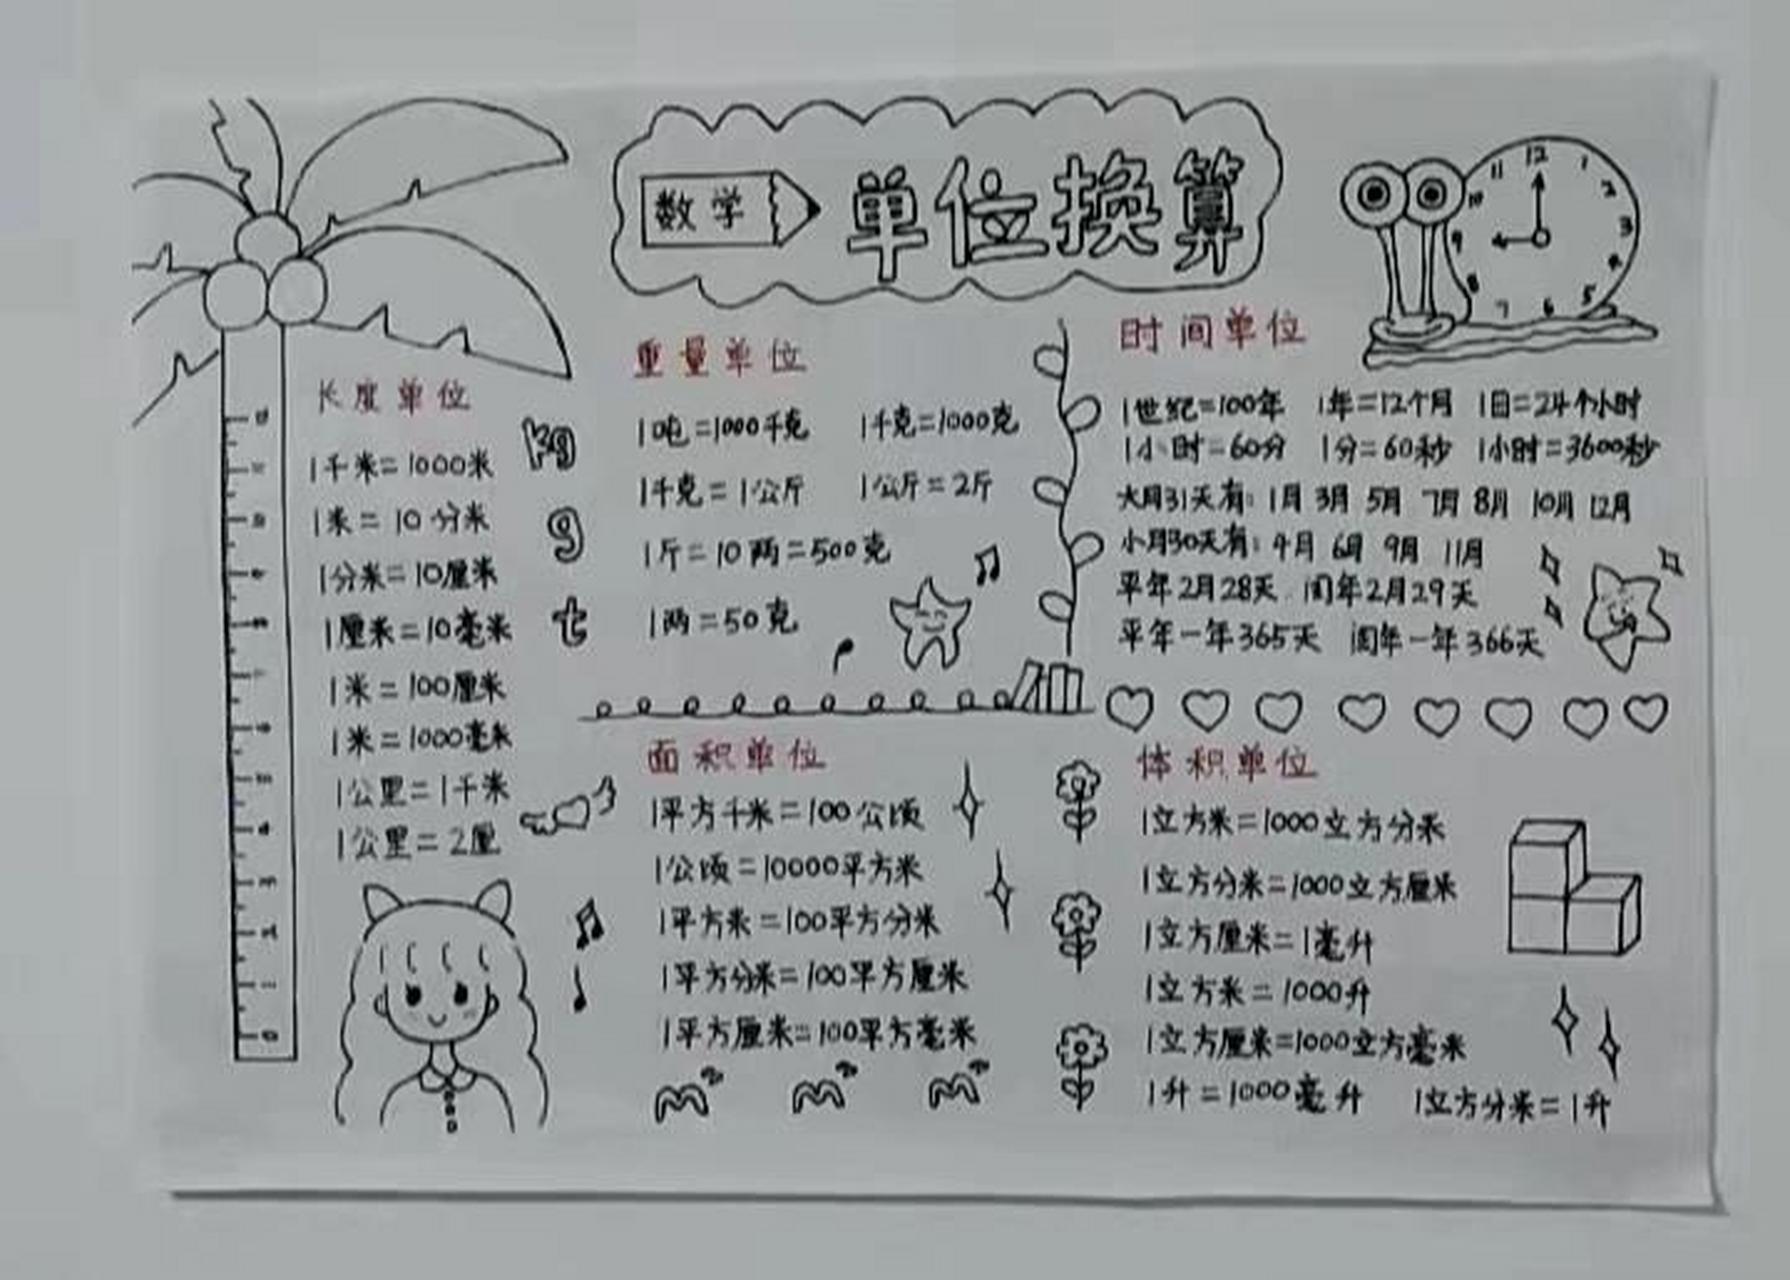 数学 单位换算
长度单位
1千米=1000米
1米=10分米
1分米=10厘米
1厘米=10毫米
1米=100厘米
1米=1000毫米
1公里=1千米
1公里=2厘
kg
g
t
重量单位
1吨=1000千克 1千克=1000克
1千克=1公斤 1公斤=2斤
1斤=10两=500克
1两=50克
时间单位
1世纪=100年 1年=12个月 1日=24个小时
1小时=60分 1分=60秒 1小时=3600秒
大月31天有:1月 3月 5月 7月 8月 10月 12月
小月30天有:4月 6月 9月 11月
平年2月28天 闰年2月29天
平年一年365天 闰年一年366天
12 1 2 3 4 5 6 7 8 9 10 11
面积单位
1平方千米=100公顷
1公顷=10000平方米
1平方米=100平方分米
1平方分米=100平方厘米
1平方厘米=100平方毫米
m² m² m²
体积单位
1立方米=1000立方分米
1立方分米=1000立方厘米
1立方厘米=1毫升
1立方米=1000升
1立方厘米=1000立方毫米
1升=1000毫升 1立方分米=1升